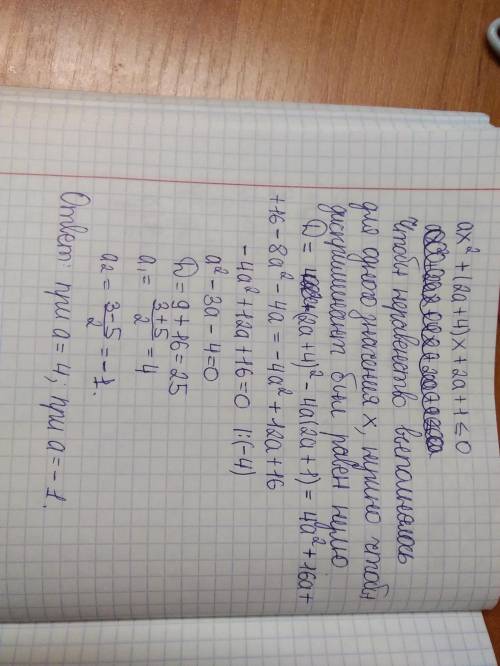 ax² + (2a+4)x + 2a + 1 ≤ 0
Чтобы неравенство выполнялось
для одного значения x, нужно чтобы
дискриминант был равен нулю
D = (2a+4)² - 4a(2a+1) = 4a² + 16a +
+ 16 - 8a² - 4a = -4a² + 12a + 16
-4a² + 12a + 16 = 0 |:(-4)
a² - 3a - 4 = 0
D = 9 + 16 = 25
a₁ = (3+5)/2 = 4
a₂ = (3-5)/2 = -1.
Ответ: при a = 4; при a = -1.